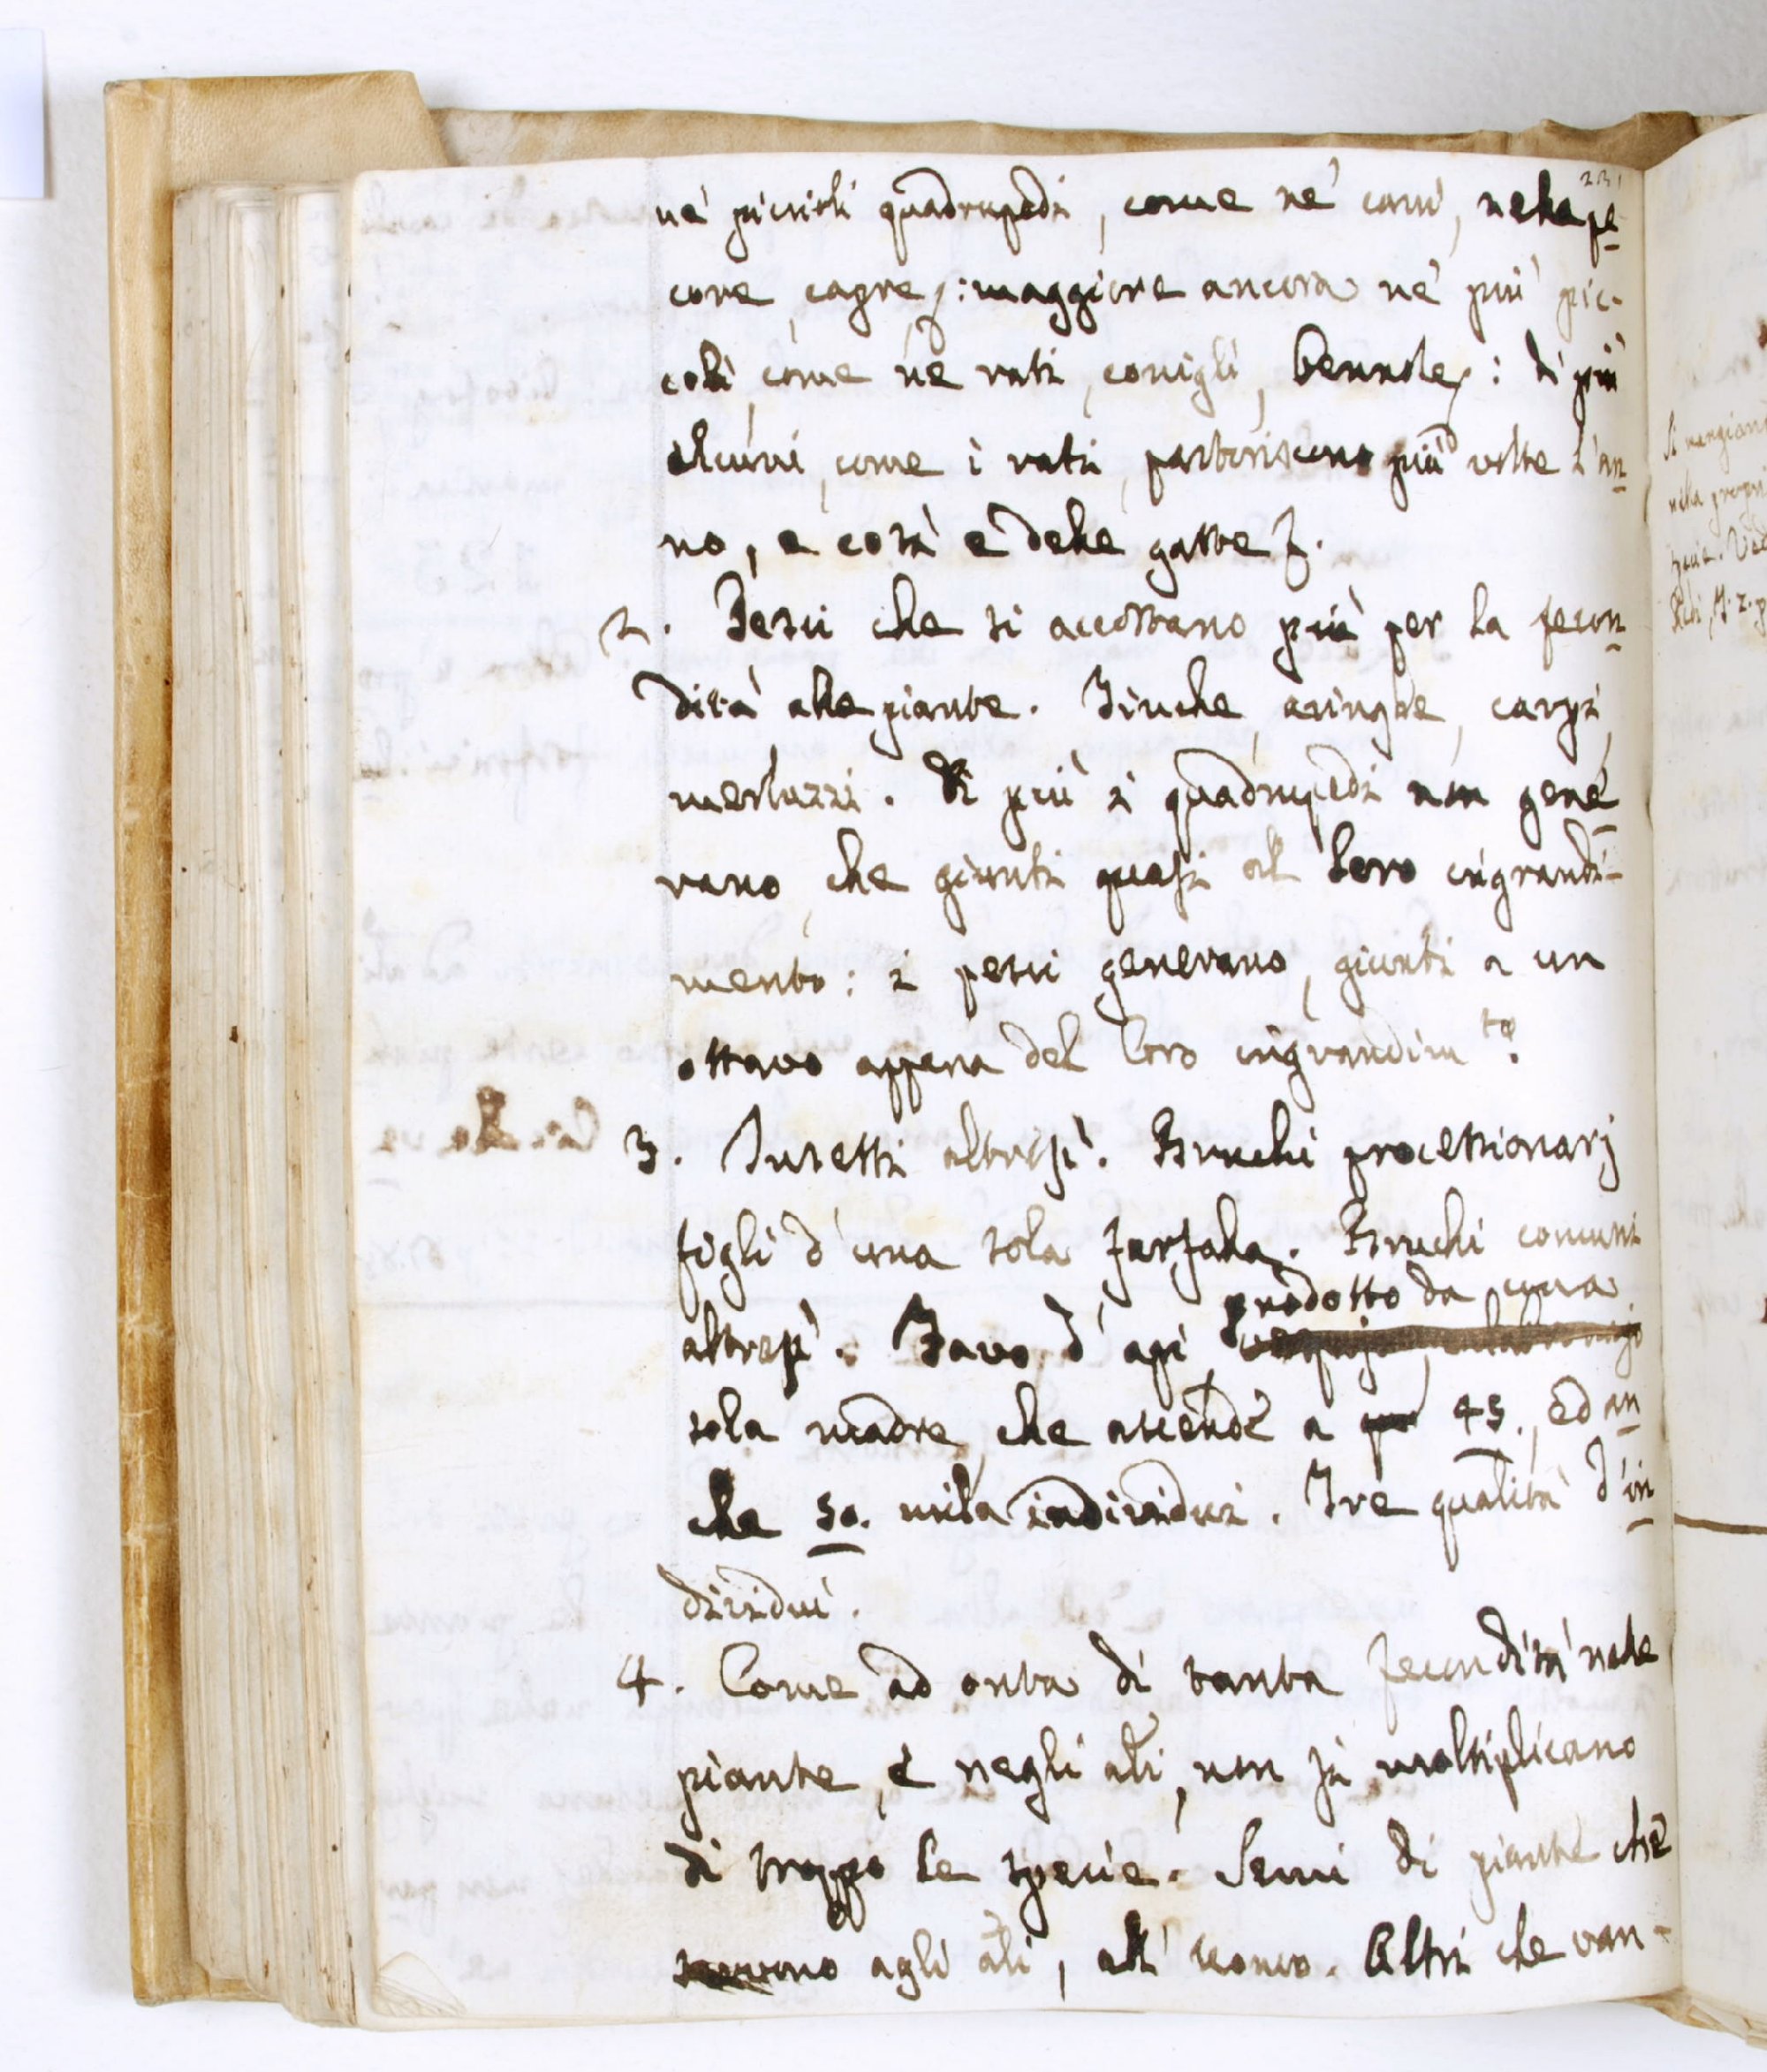 ne' piccioli quadrupedi, come ne' cani, nelle pe
core, capre, : maggiore ancora ne' più pic-
coli, come ne' rati, conigli, bennole, : di più
alcuni, come i rati, partoriscono più volte l'an
no, e così è delle gatte.
2. Pesci che si accostano più per la fecon
dità alle piante. Tinche, aringhe, carpi,
merluzzi. Di più i quadrupedi non gene
rano, che giunti quasi al loro ingrandi-
mento: i pesci generano, giunti a un
ottavo appena del loro ingrandimto.
3. Insetti altresì. Bruchi processionarj
figli d'una sola farfalla. Bruchi comuni
prodotto da una
altresì. Favo d'api
sola madre, che ascende a 45., ed an
che 50. mila individui. Tre qualità d'in
dividui.
4. Come ad onta di tanta fecondità nelle
piante, e negli ali, non si moltiplicano
di troppo le specie. Semi di piante che
servono agli ali, all'uomo. Altri che van-
Si mangiano
nella propri